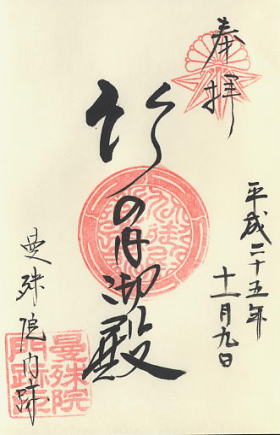 奉拝
平成二十五年
十一月九日
竹の内御殿
曼殊院門跡
曼殊院
門跡